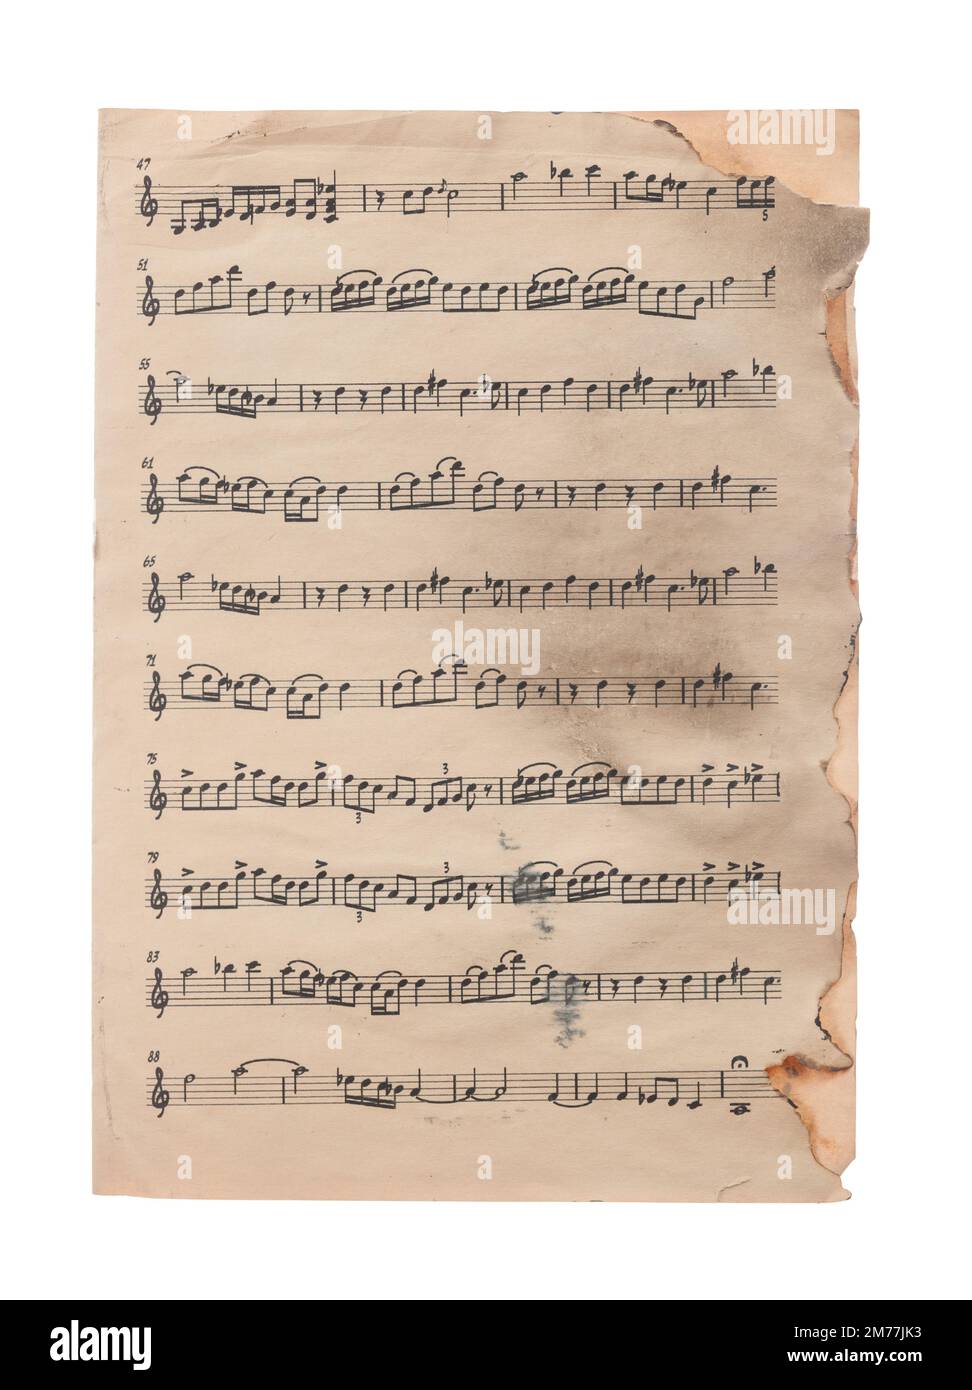 a a a
47
5
51
a a a
55
61
alamy
a a a
65
alamy
71
75
3
3
alamy
a a a
79
3
3
alamy
83
a a a
88
a a a
alamy
Image ID: 2M77JK3
www.alamy.com
2M77JK3